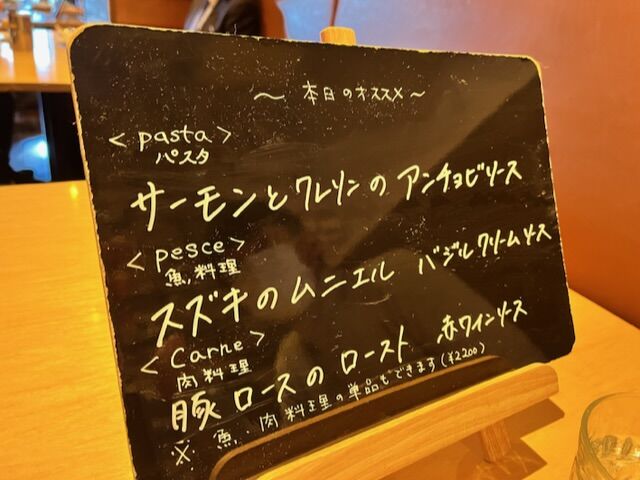 ～ 本日のオススメ～
<pasta>
パスタ
サーモンとクレソンの アンチョビソース
<pesce>
魚料理
スズキのムニエル バジルクリームソース
<Carne>
肉料理
豚ロースのロースト 赤ワインソース
※ 魚・肉料理の単品もできます(¥2200)